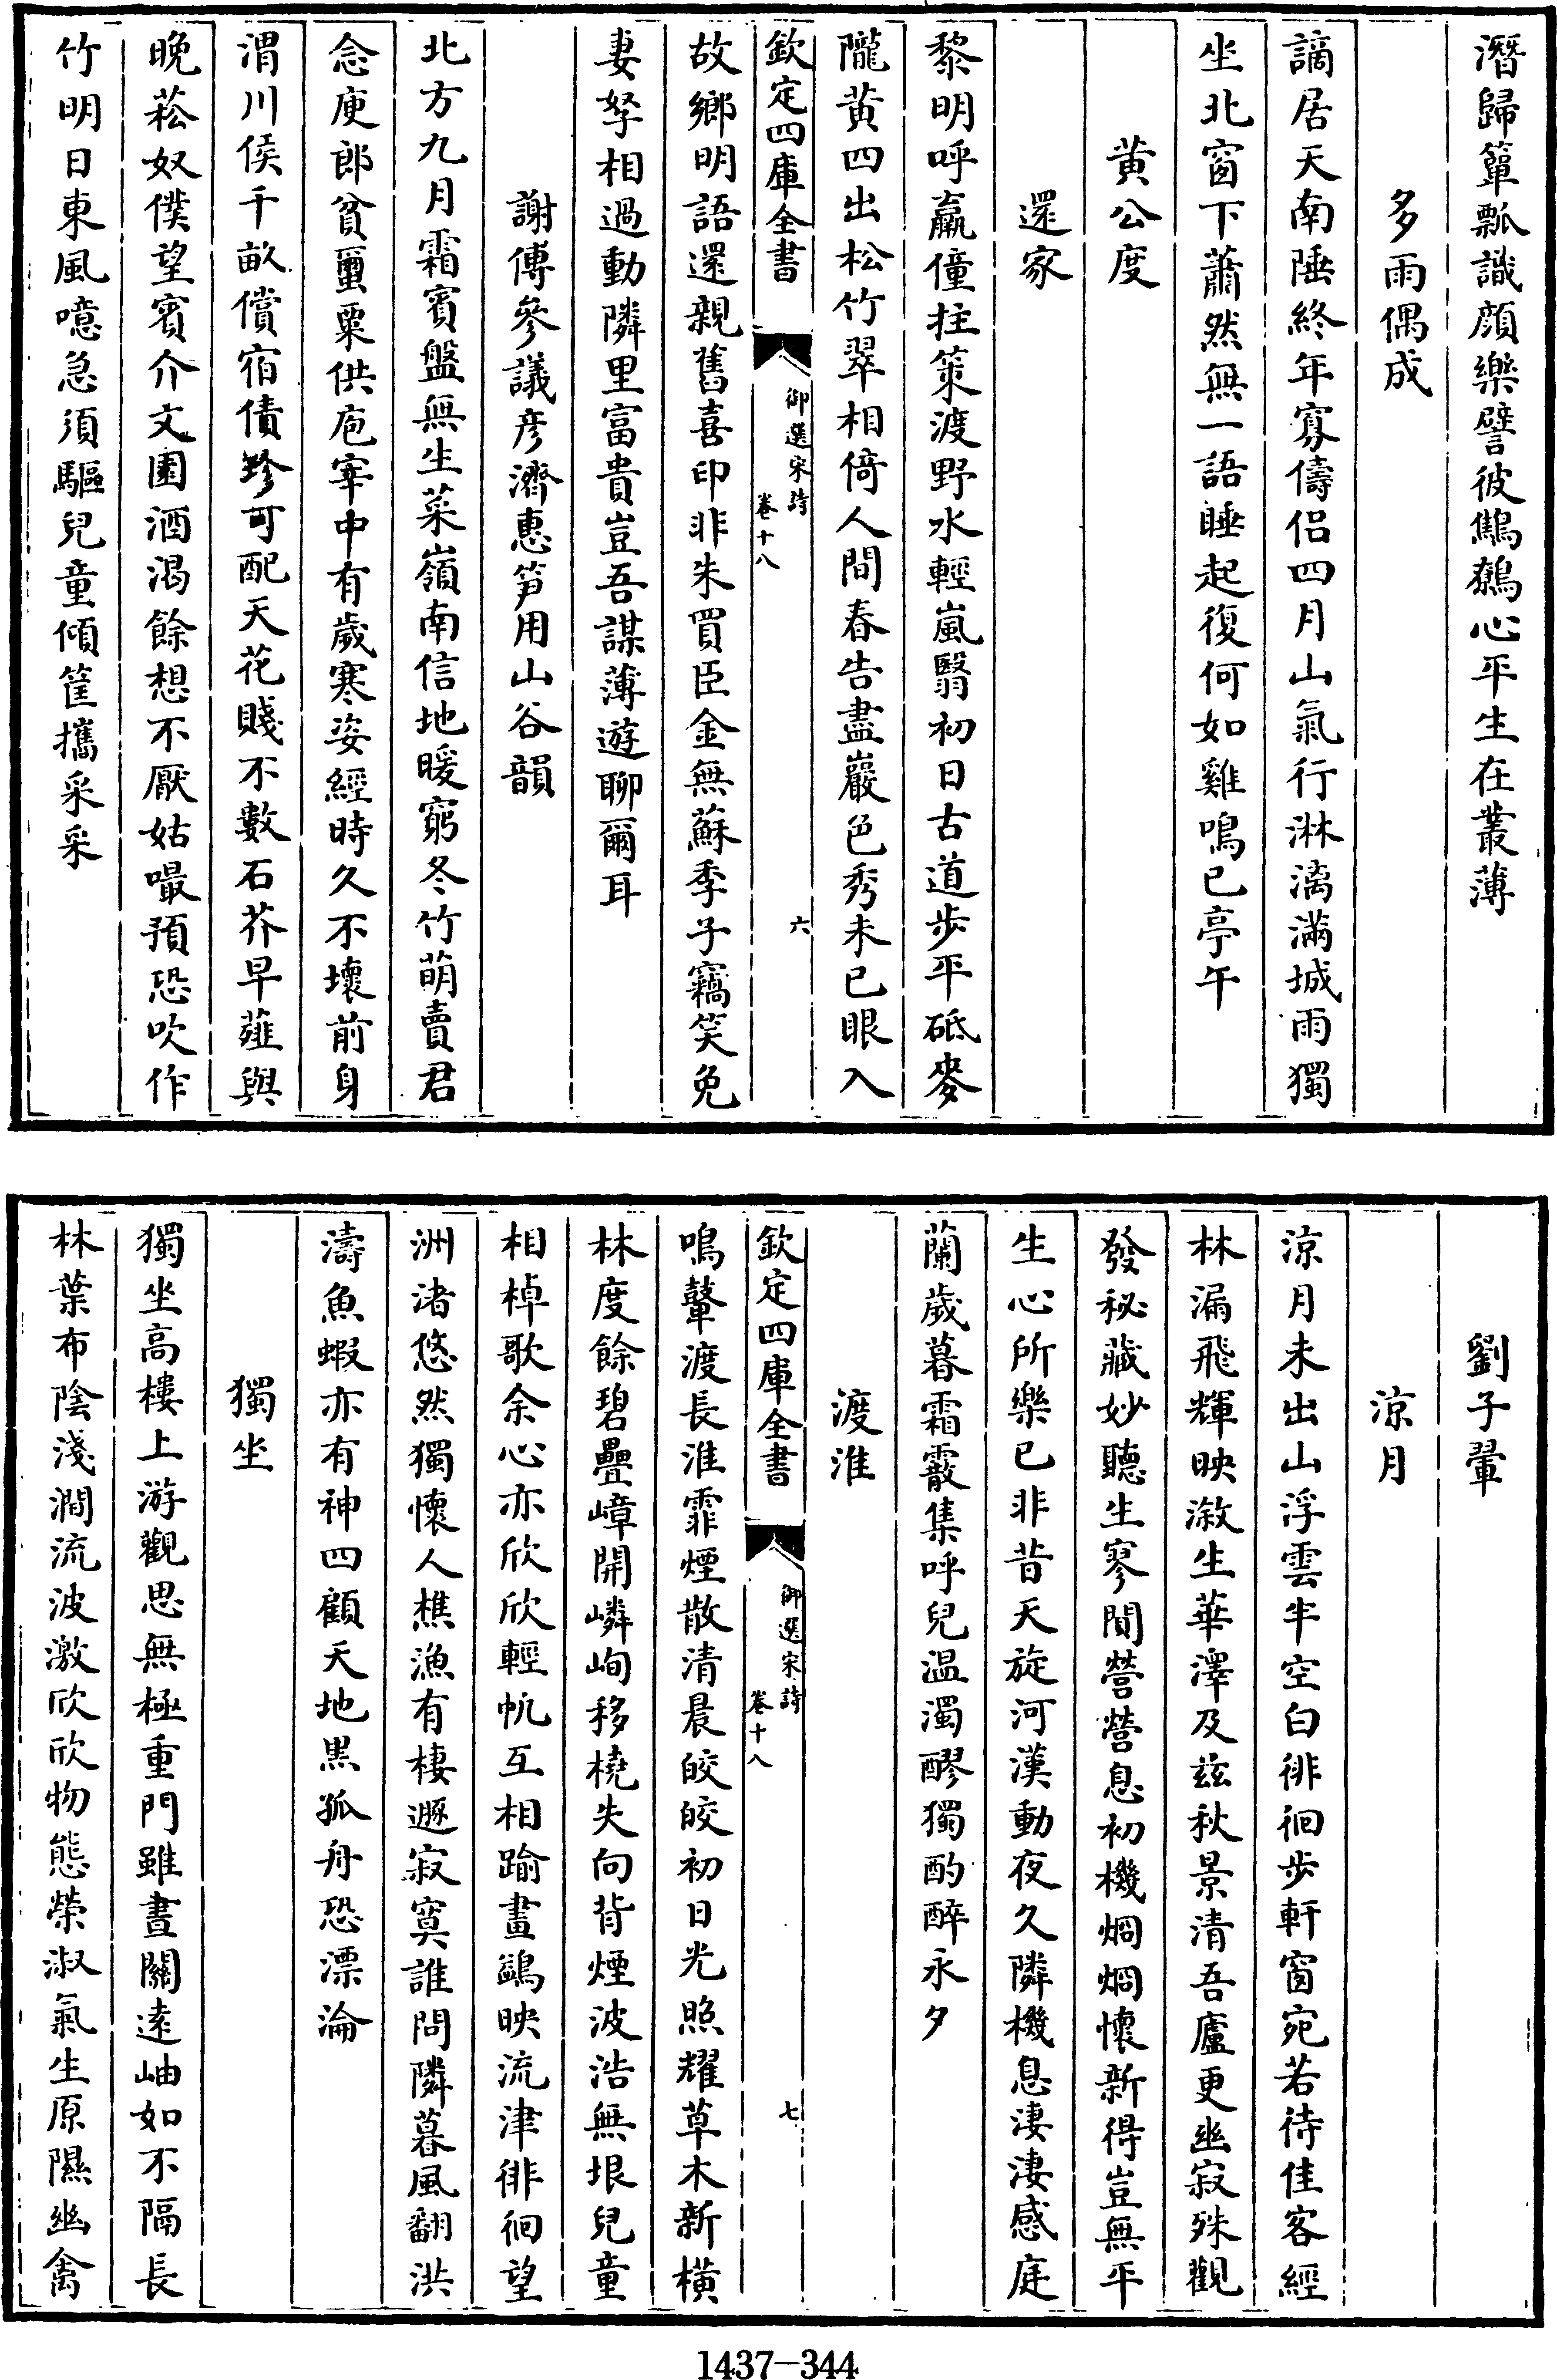 潛歸簞瓢識顔樂譬彼鷦鷯心平生在叢薄
多雨偶成
謫居天南陲終年寡儔侣四月山氣行淋漓滿城雨獨
坐北窗下蕭然無一語睡起復何如雞鳴已亭午
黄公度
還家
黎明呼羸僮拄策渡野水輕嵐翳初日古道步平砥麥
隴黄四出松竹翠相倚人間春告盡巖色秀未已眼入
欽定四庫全書
御選宋詩
卷十八
六
故鄉明語還親舊喜印非朱買臣金無蘇季子竊笑免
妻孥相過動隣里富貴豈吾謀薄遊聊爾耳
謝傅參議彦濟惠笋用山谷韻
北方九月霜賓盤無生菜嶺南信地暖窮冬竹萌賣君
念庾郎貧蠒粟供庖宰中有歲寒姿經時久不壞前身
渭川侯千畝償宿債珍可配天花賤不數石芥早薤與
晚菘奴僕望賓介文園酒渇餘想不厭姑嘬預恐吹作
竹明日東風噫急須驅兒童傾筐攜采采
劉子翬
涼月
涼月未出山浮雲半空白徘徊步軒窗宛若待佳客經
林漏飛輝映潊生華澤及兹秋景清吾廬更幽寂殊觀
發秘藏妙聽生寥閴營營息初機烱烱懷新得豈無平
生心所樂已非昔天旋河漢動夜久隣機息淒淒感庭
蘭歲暮霜霰集呼兒温濁醪獨酌醉永夕
渡淮
欽定四庫全書
御選宋詩
卷十八
七
鳴鼙渡長淮霏煙散清晨皎皎初日光照耀草木新横
林度餘碧疊嶂開嶙峋移橈失向背煙波浩無垠兒童
相棹歌余心亦欣欣輕帆互相踰畫鷁映流津徘徊望
洲渚悠然獨懷人樵漁有棲遯寂寞誰問隣暮風翻洪
濤魚蝦亦有神四顧天地黒孤舟恐漂淪
獨坐
獨坐高樓上游觀思無極重門雖晝關遠岫如不隔長
林葉布陰淺澗流波激欣欣物態榮淑氣生原隰幽禽
1437-344